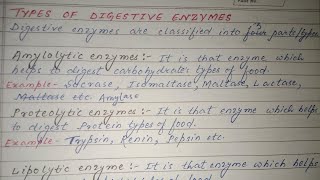 TYPES OF DIGESTIVE ENZYMES
Digestive enzymes are classified into parts/types.
Amylolytic enzymes :- It is that enzyme which
helps to digest carbohydrates types of food.
Example - Sucrase, Isomaltase, Maltase, Lactase,
Maltase etc. Amylase
Proteolytic enzymes :- It is that enzyme which helps
to digest Protein types of food.
Example - Trypsin, Renin, Pepsin etc.
Lipolytic enzyme :- It is that enzyme which helps
food.